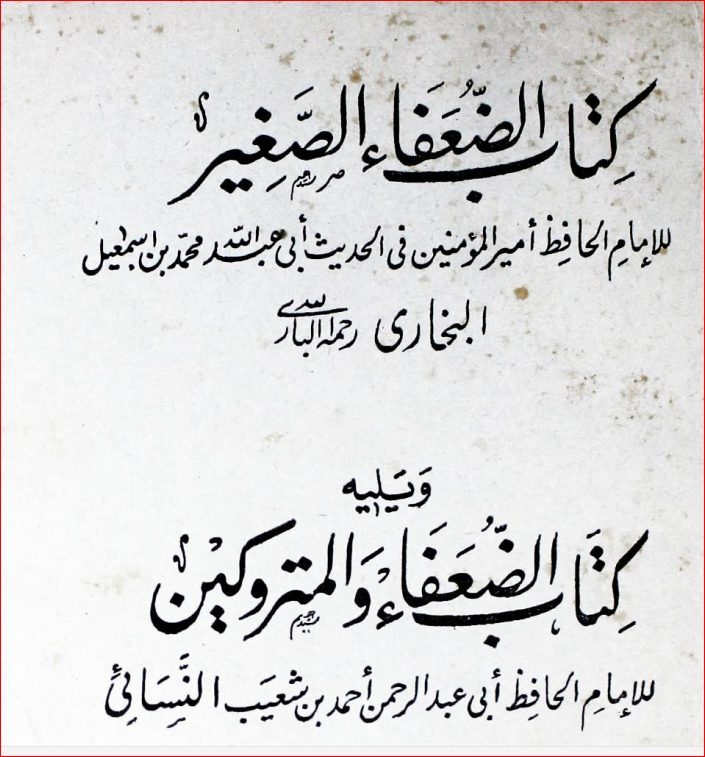 كِتَابُ الضُّعَفَاءِ الصَّغِير
للإمامِ الحافِظ أمير المؤمنين فى الحديث أبى عبد الله محمّد بن اسمٰعيل
البخارى رحمه الله البارى
وَيَلِيه
كِتَابُ الضُّعَفَاءِ وَالمتروكِين
للإمامِ الحافِظ أبى عبد الرحمن أحمد بن شعَيب النَّسِائِئ